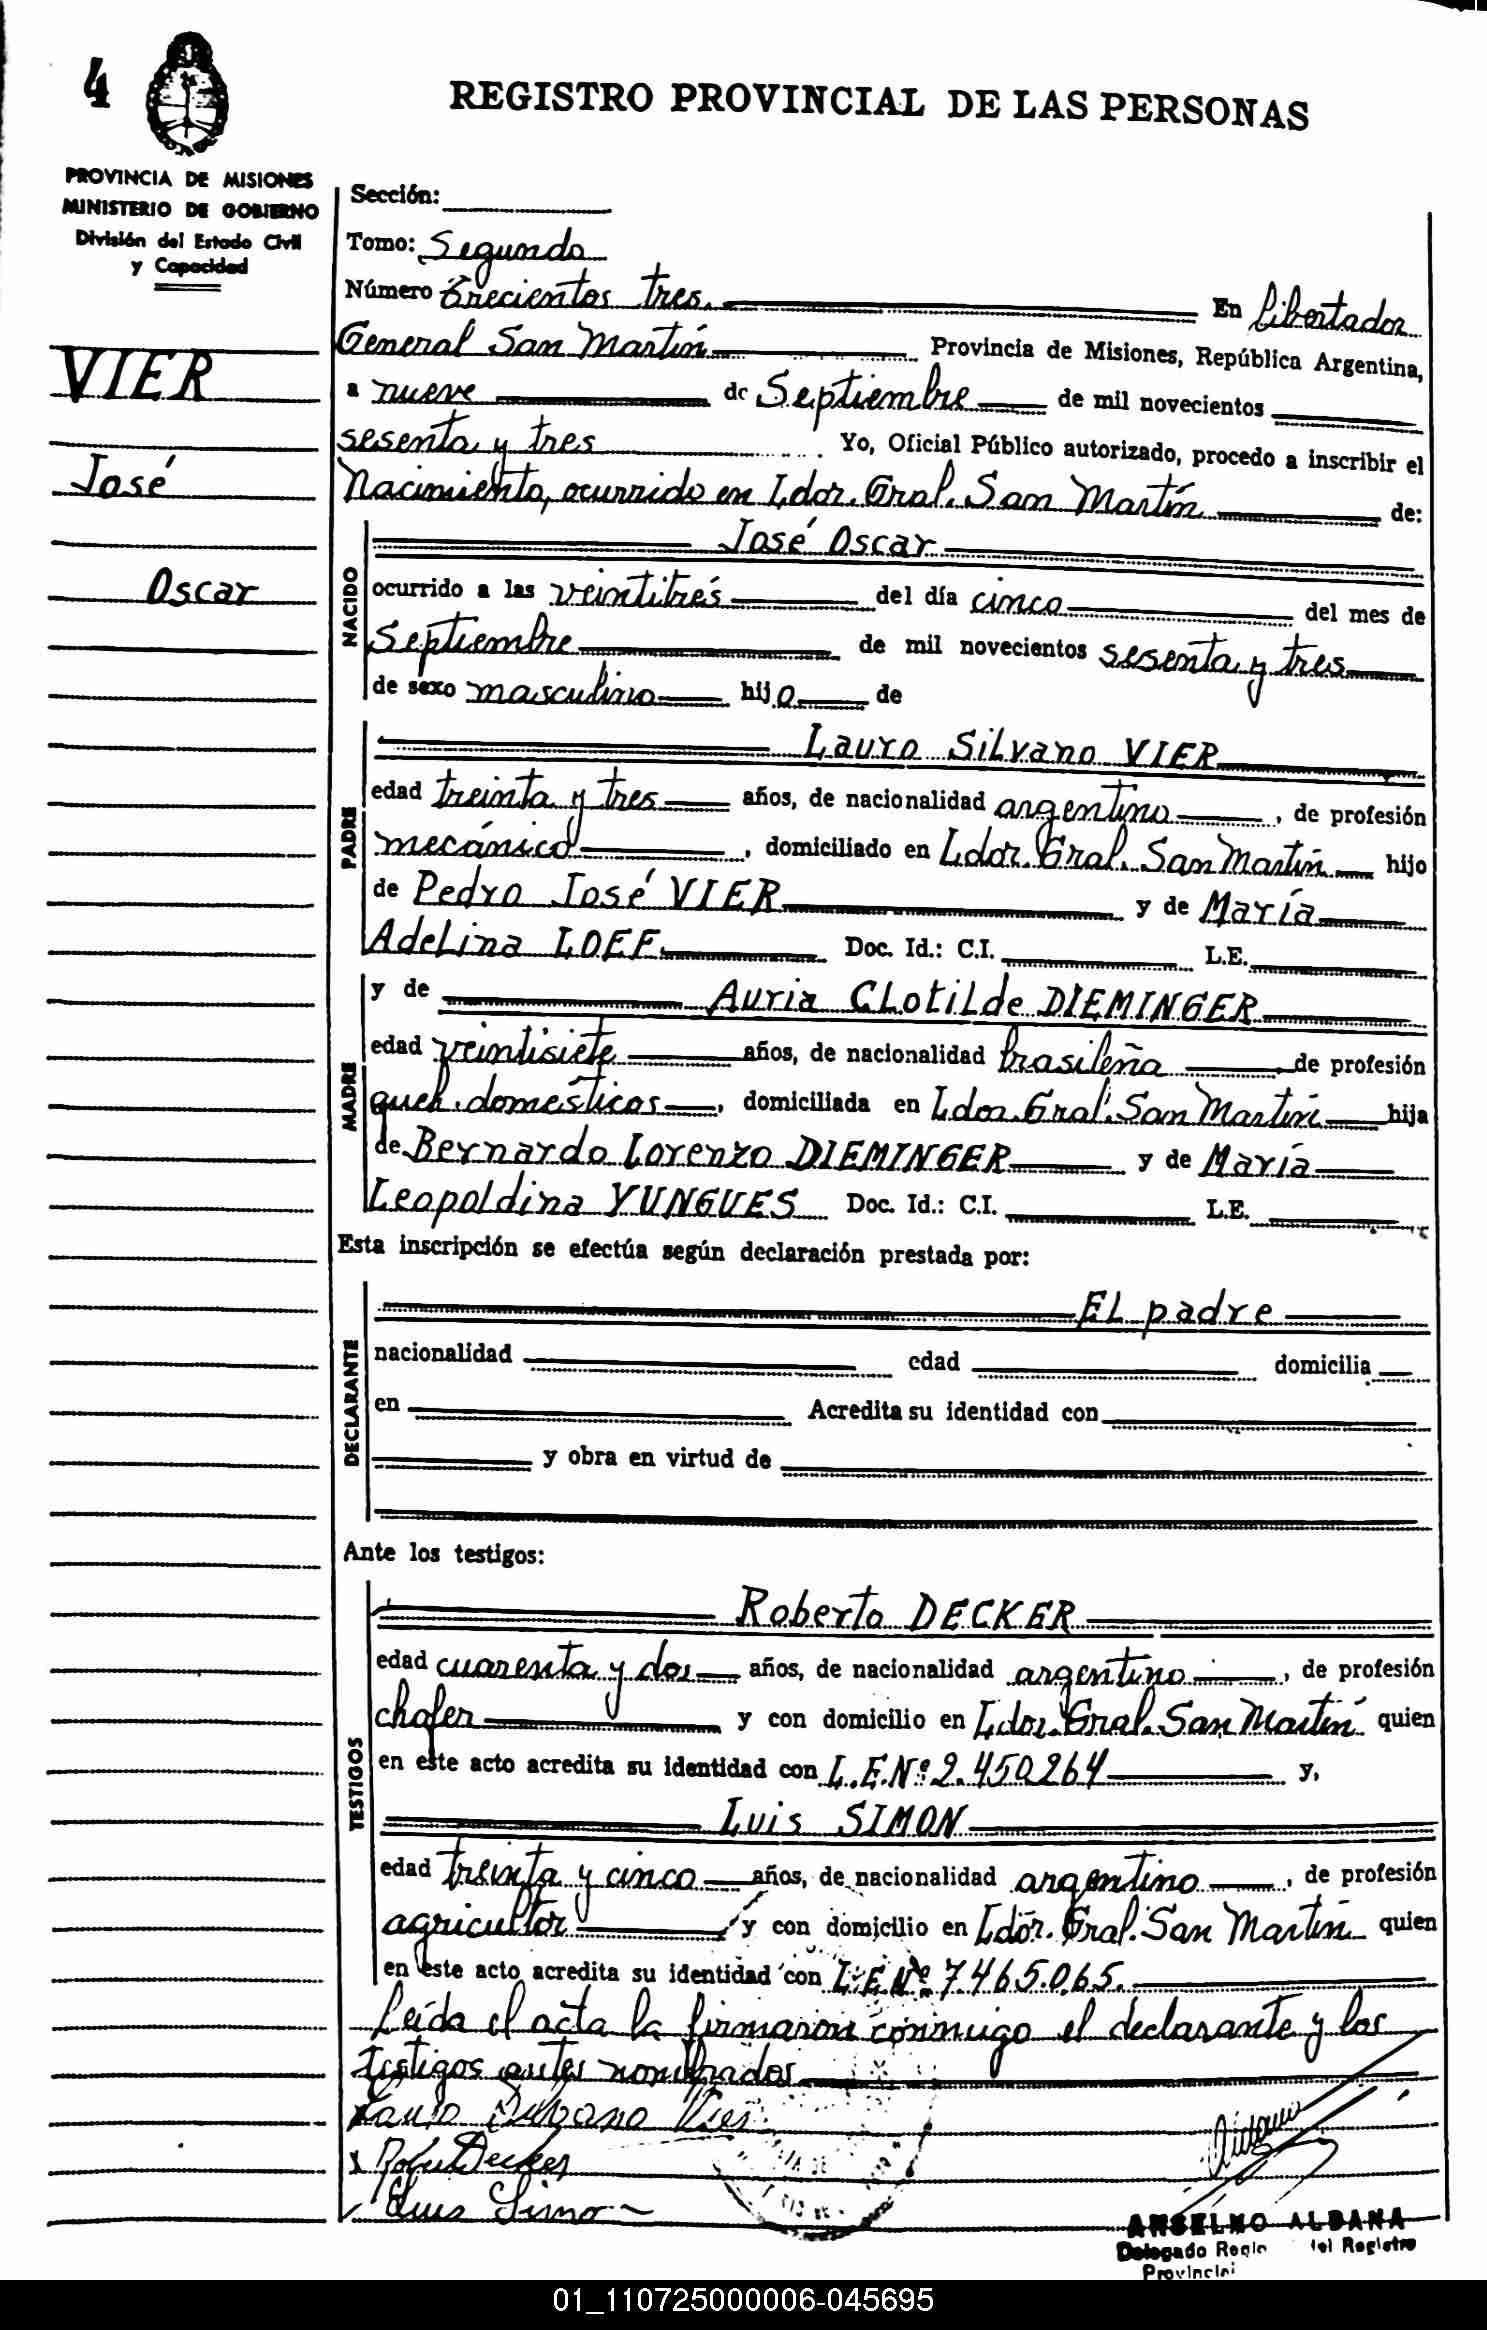 4
REGISTRO PROVINCIAL DE LAS PERSONAS
PROVINCIA DE MISIONES
MINISTERIO DE GOBIERNO
División del Estado Civil
y Capacidad
VIER
José
Oscar
Sección:
Tomo: Segundo
Número Trecientos tres. En Libertador
General San Martín Provincia de Misiones, República Argentina,
a nueve de Septiembre de mil novecientos
sesenta y tres Yo, Oficial Público autorizado, procedo a inscribir el
Nacimiento, ocurrido en Ldor. Gral. San Martín de:
NACIDO
José Oscar
ocurrido a las veintitrés del día cinco del mes de
Septiembre de mil novecientos sesenta y tres
de sexo masculino hijo de
PADRE
Lauro Silvano VIER
edad treinta y tres años, de nacionalidad argentino, de profesión
mecánico, domiciliado en Ldor. Gral. San Martín hijo
de Pedro José VIER y de María
Adelina LOEF. Doc. Id.: C.I. L.E.
MADRE
y de Auria Clotilde DIEMINGER
edad veintisiete años, de nacionalidad brasileña, de profesión
queh. domésticos, domiciliada en Ldor. Gral. San Martín hija
de Bernardo Lorenzo DIEMINGER y de María
Leopoldina YUNGUES Doc. Id.: C.I. L.E.
Esta inscripción se efectúa según declaración prestada por:
DECLARANTE
El padre
nacionalidad edad domicilia
en Acredita su identidad con
y obra en virtud de
Ante los testigos:
TESTIGOS
Roberto DECKER
edad cuarenta y dos años, de nacionalidad argentino, de profesión
chofer y con domicilio en Ldor. Gral. San Martín quien
en este acto acredita su identidad con L.E.Nº 2.450264 y,
Luis SIMON
edad treinta y cinco años, de nacionalidad argentino, de profesión
agricultor y con domicilio en Ldor. Gral. San Martín quien
en este acto acredita su identidad con L.E.Nº 7.465.065.
Leída el acta la firmaron conmigo el declarante y los
testigos antes nombrados
Lauro Silvano Vier
Robert Decker
Luis Simon
ANSELMO ALDANA
Delegado Regio del Registro
Provincial
01_110725000006-045695